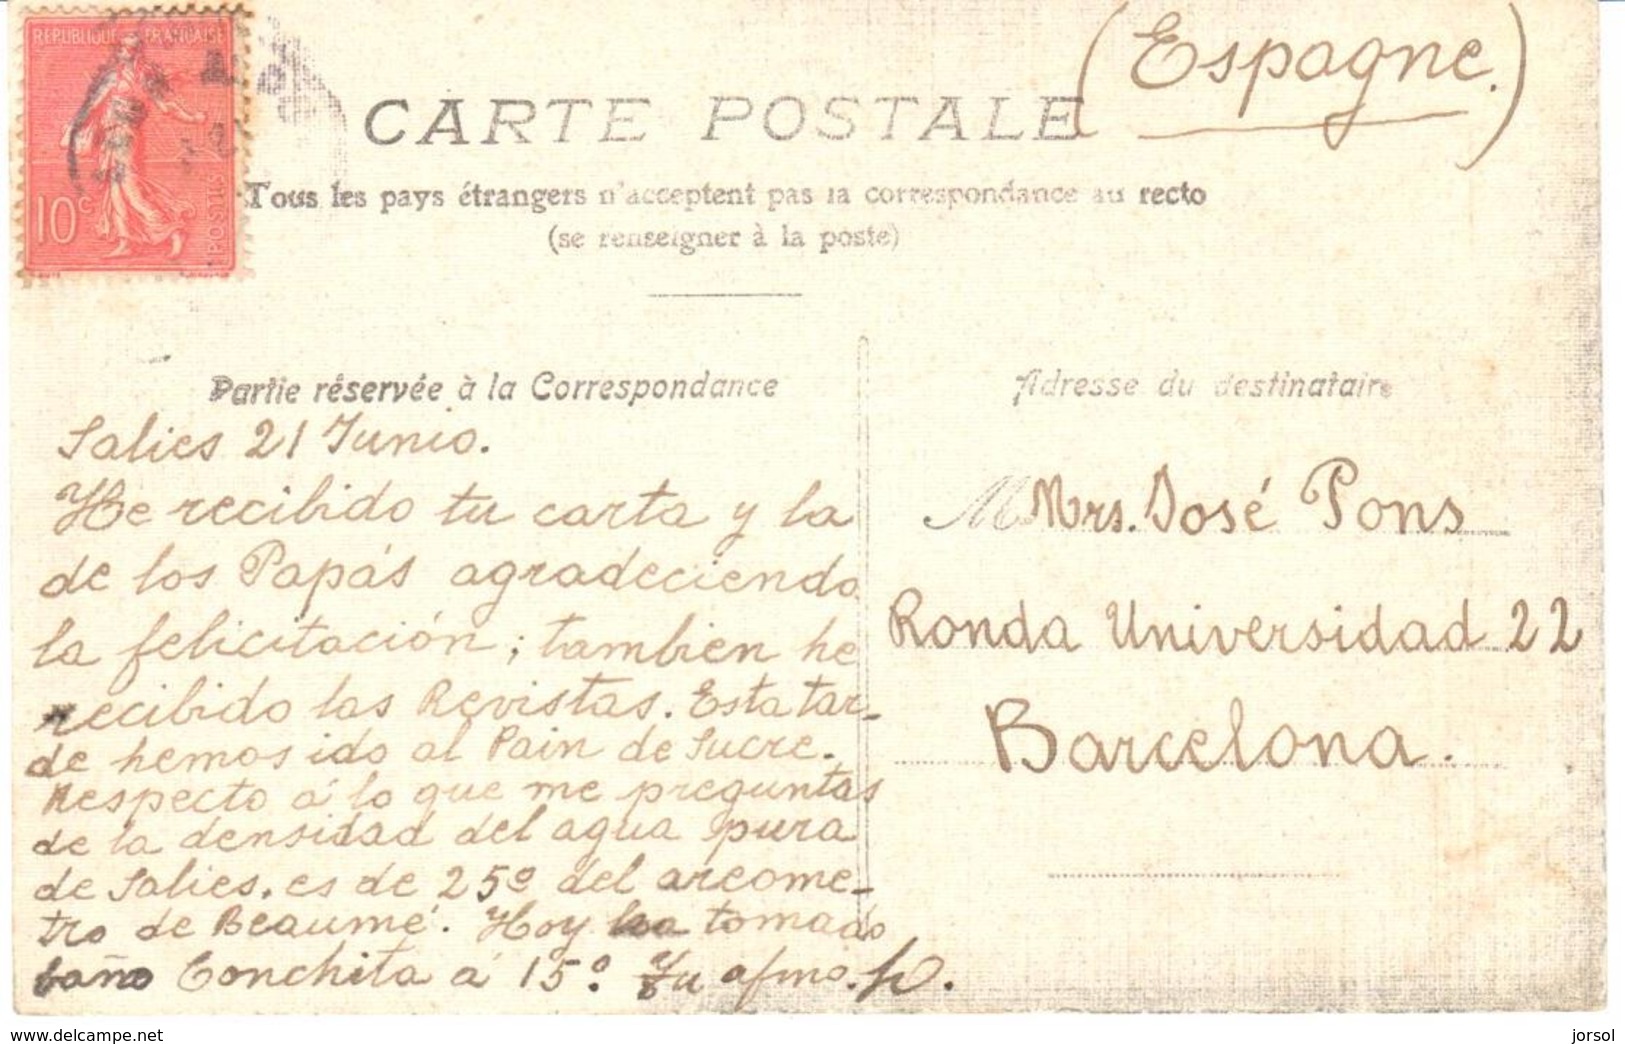 (Espagne.)
REPUBLIQUE FRANÇAISE
10c
POSTES
CARTE POSTALE
Tous les pays étrangers n'acceptent pas la correspondance au recto
(se renseigner à la poste)
Partie réservée à la Correspondance
Salies 21 Junio.
He recibido tu carta y la
de los Papás agradeciendo
la felicitación; tambien he
recibido las Revistas. Esta tar-
de hemos ido al Pain de Sucre.
Respecto á lo que me preguntas
de la densidad del agua pura
de Salies, es de 25º del areome-
tro de Beaumé. Hoy ha tomado
baño Conchita á 15º. Tu afmo.
Adresse du destinataire
M Mrs. José Pons
Ronda Universidad 22
Barcelona.
www.delcampe.net
jorsol